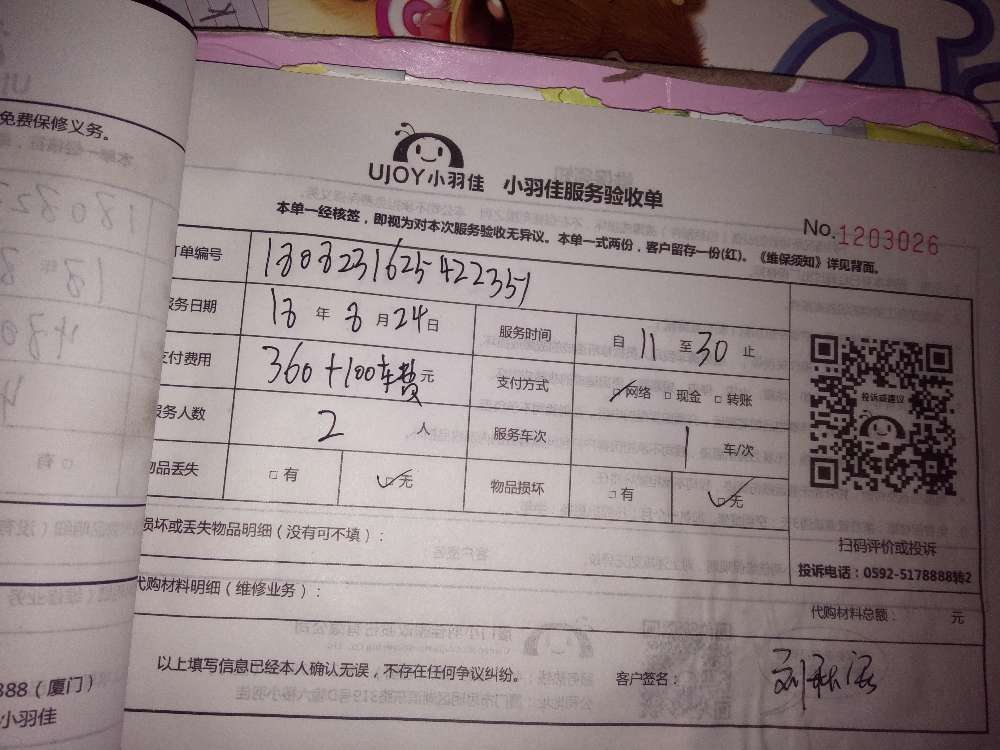 免费保修义务。
UJOY小羽佳 小羽佳服务验收单
No.1203026
本单一经核签，即视为对本次服务验收无异议。本单一式两份，客户留存一份(红)。《维保须知》详见背面。
订单编号 1808231625422351
服务日期 18 年 8 月 24 日 服务时间 自 11 至 30 止
支付费用 360+100车费元 支付方式 网络 现金 转账
投诉或建议
服务人数 2 人 服务车次 1 车/次
物品丢失 有 无 物品损坏 有 无
扫码评价或投诉
投诉电话：0592-5178888转2
损坏或丢失物品明细（没有可不填）：
代购材料明细（维修业务）：
代购材料总额： 元
以上填写信息已经本人确认无误，不存在任何争议纠纷。 客户签名：
888（厦门）
小羽佳